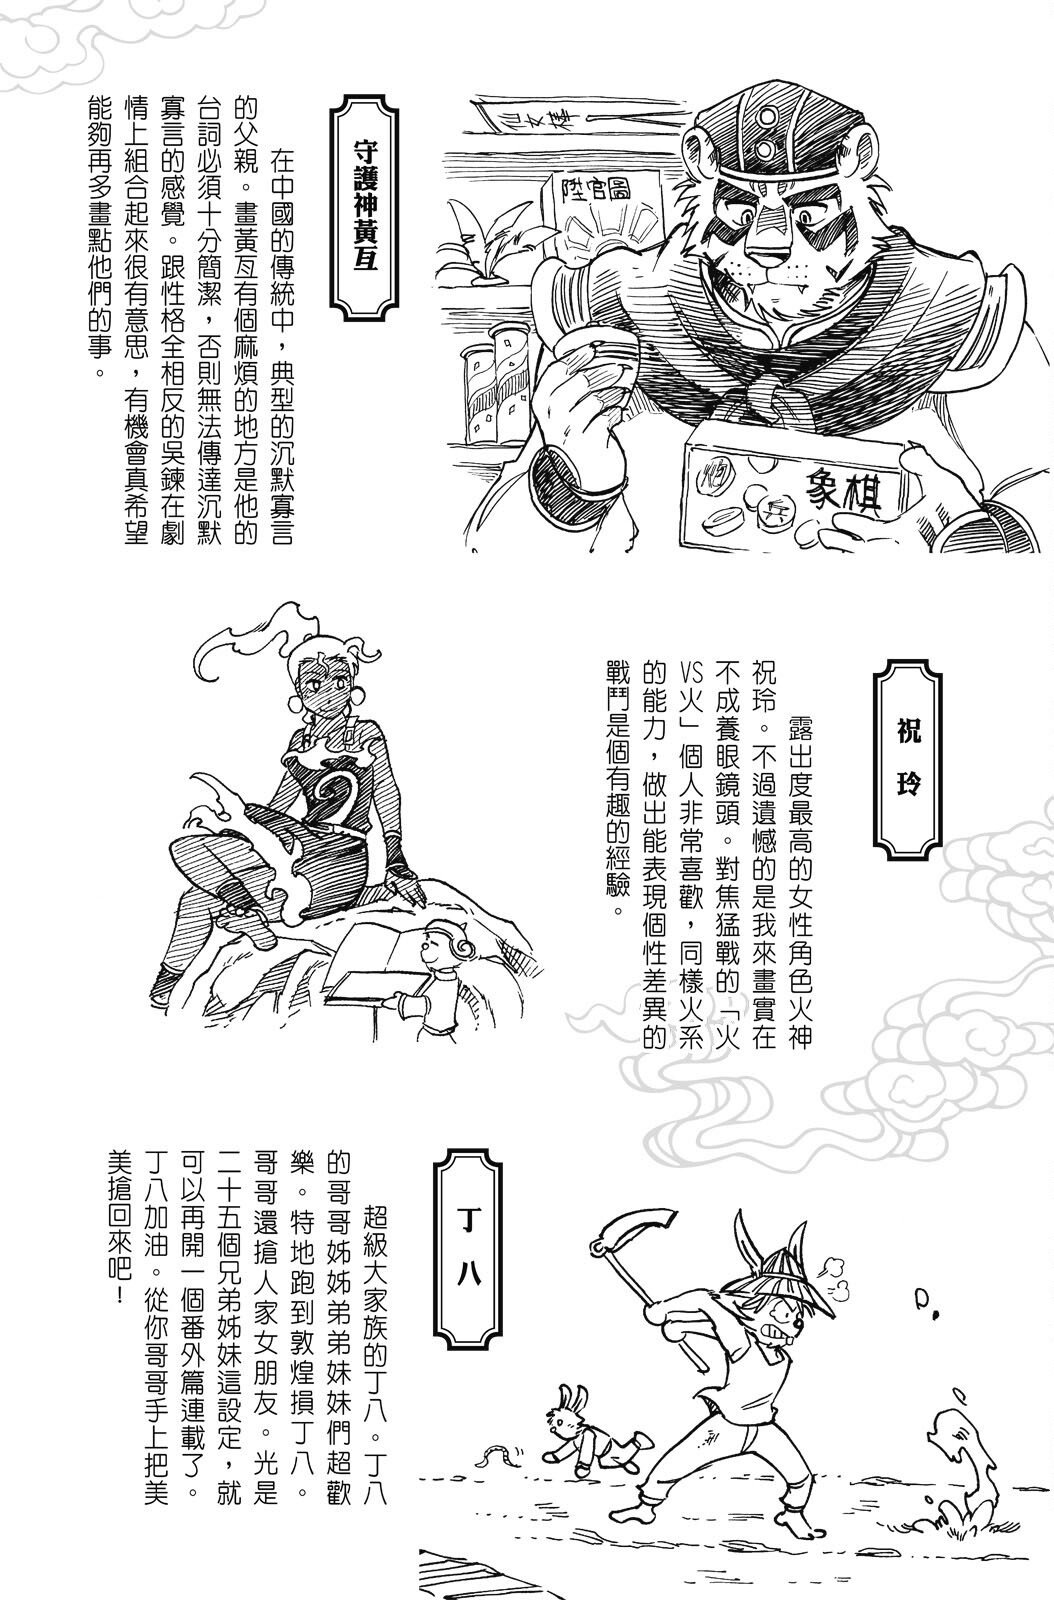 守護神黃亙
在中國的傳統中，典型的沉默寡言
的父親。畫黃亙有個麻煩的地方是他的
台詞必須十分簡潔，否則無法傳達沉默
寡言的感覺。跟性格全相反的吳鍊在劇
情上組合起來很有意思，有機會真希望
能夠再多畫點他們的事。
仙女棒
陞官圖
象棋
炮
兵
祝玲
露出度最高的女性角色火神
祝玲。不過遺憾的是我來畫實在
不成養眼鏡頭。對焦猛戰的「火
VS火」個人非常喜歡，同樣火系
的能力，做出能表現個性差異的
戰鬥是個有趣的經驗。
丁八
超級大家族的丁八。丁八
的哥哥姊姊弟弟妹妹們超歡
樂。特地跑到敦煌損丁八。
哥哥還搶人家女朋友。光是
二十五個兄弟姊妹這設定，就
可以再開一個番外篇連載了。
丁八加油。從你哥哥手上把美
美搶回來吧！